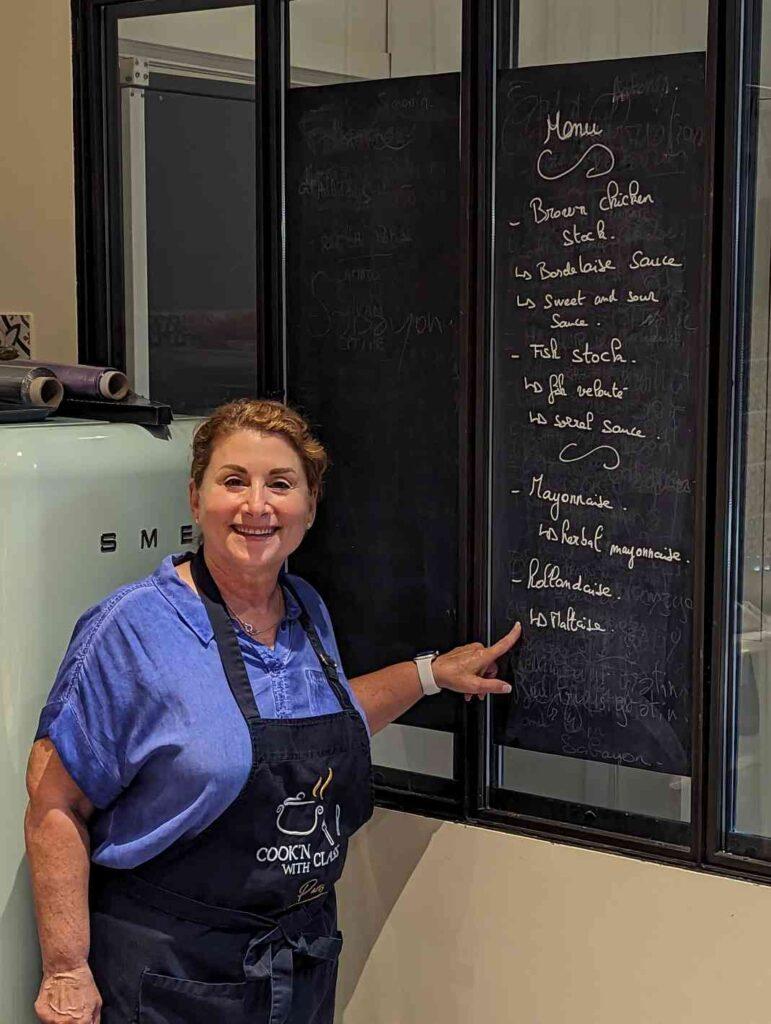 Menu
- Brown chicken
Stock.
↳ Bordelaise Sauce
↳ Sweet and sour
Sauce.
- Fish stock.
↳ fish velouté
↳ sorrel sauce.
- Mayonnaise.
↳ herbal mayonnaise.
- hollandaise.
↳ Maltaise.
Sabayon
Sabayon
SME
COOK'N
WITH CLASS
Paris